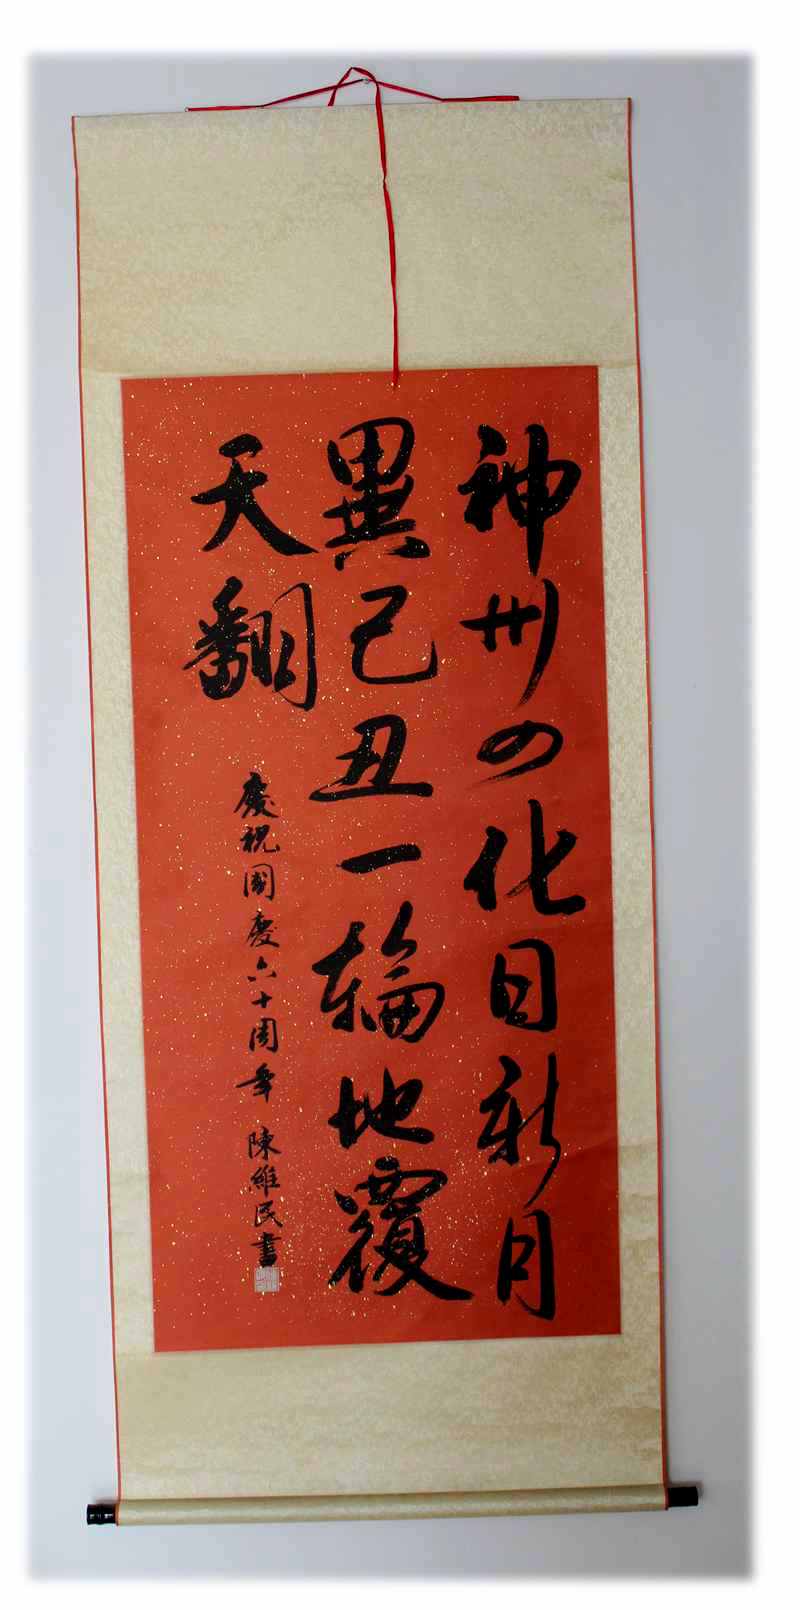 神州四化日新月
異己丑一輪地覆
天翻
慶祝國慶六十周年 陳維民書